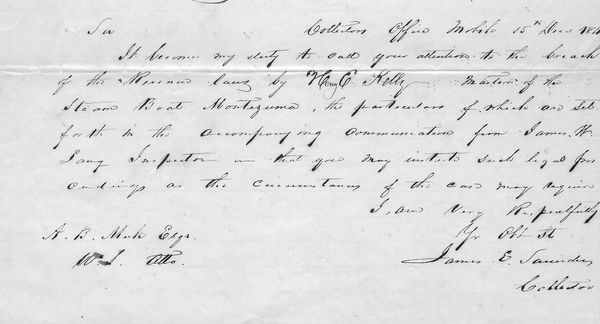 Sir Collectors Office Mobile 15th Decr 184
It becomes my duty to call your attention to the breach
of the Revenue laws by Henry E Kelly Master of the
Steam Boat Montezuma, the particulars of which are set
forth in the accompanying communication from James. W.
Lang Inspector that you may institute such legal pro
ceedings as the circumstances of the case may require
I, am Very Respectfully
Yr Obt St
A. B. Meek Esqr. James E. Saunders
U. S. Atto. Collector